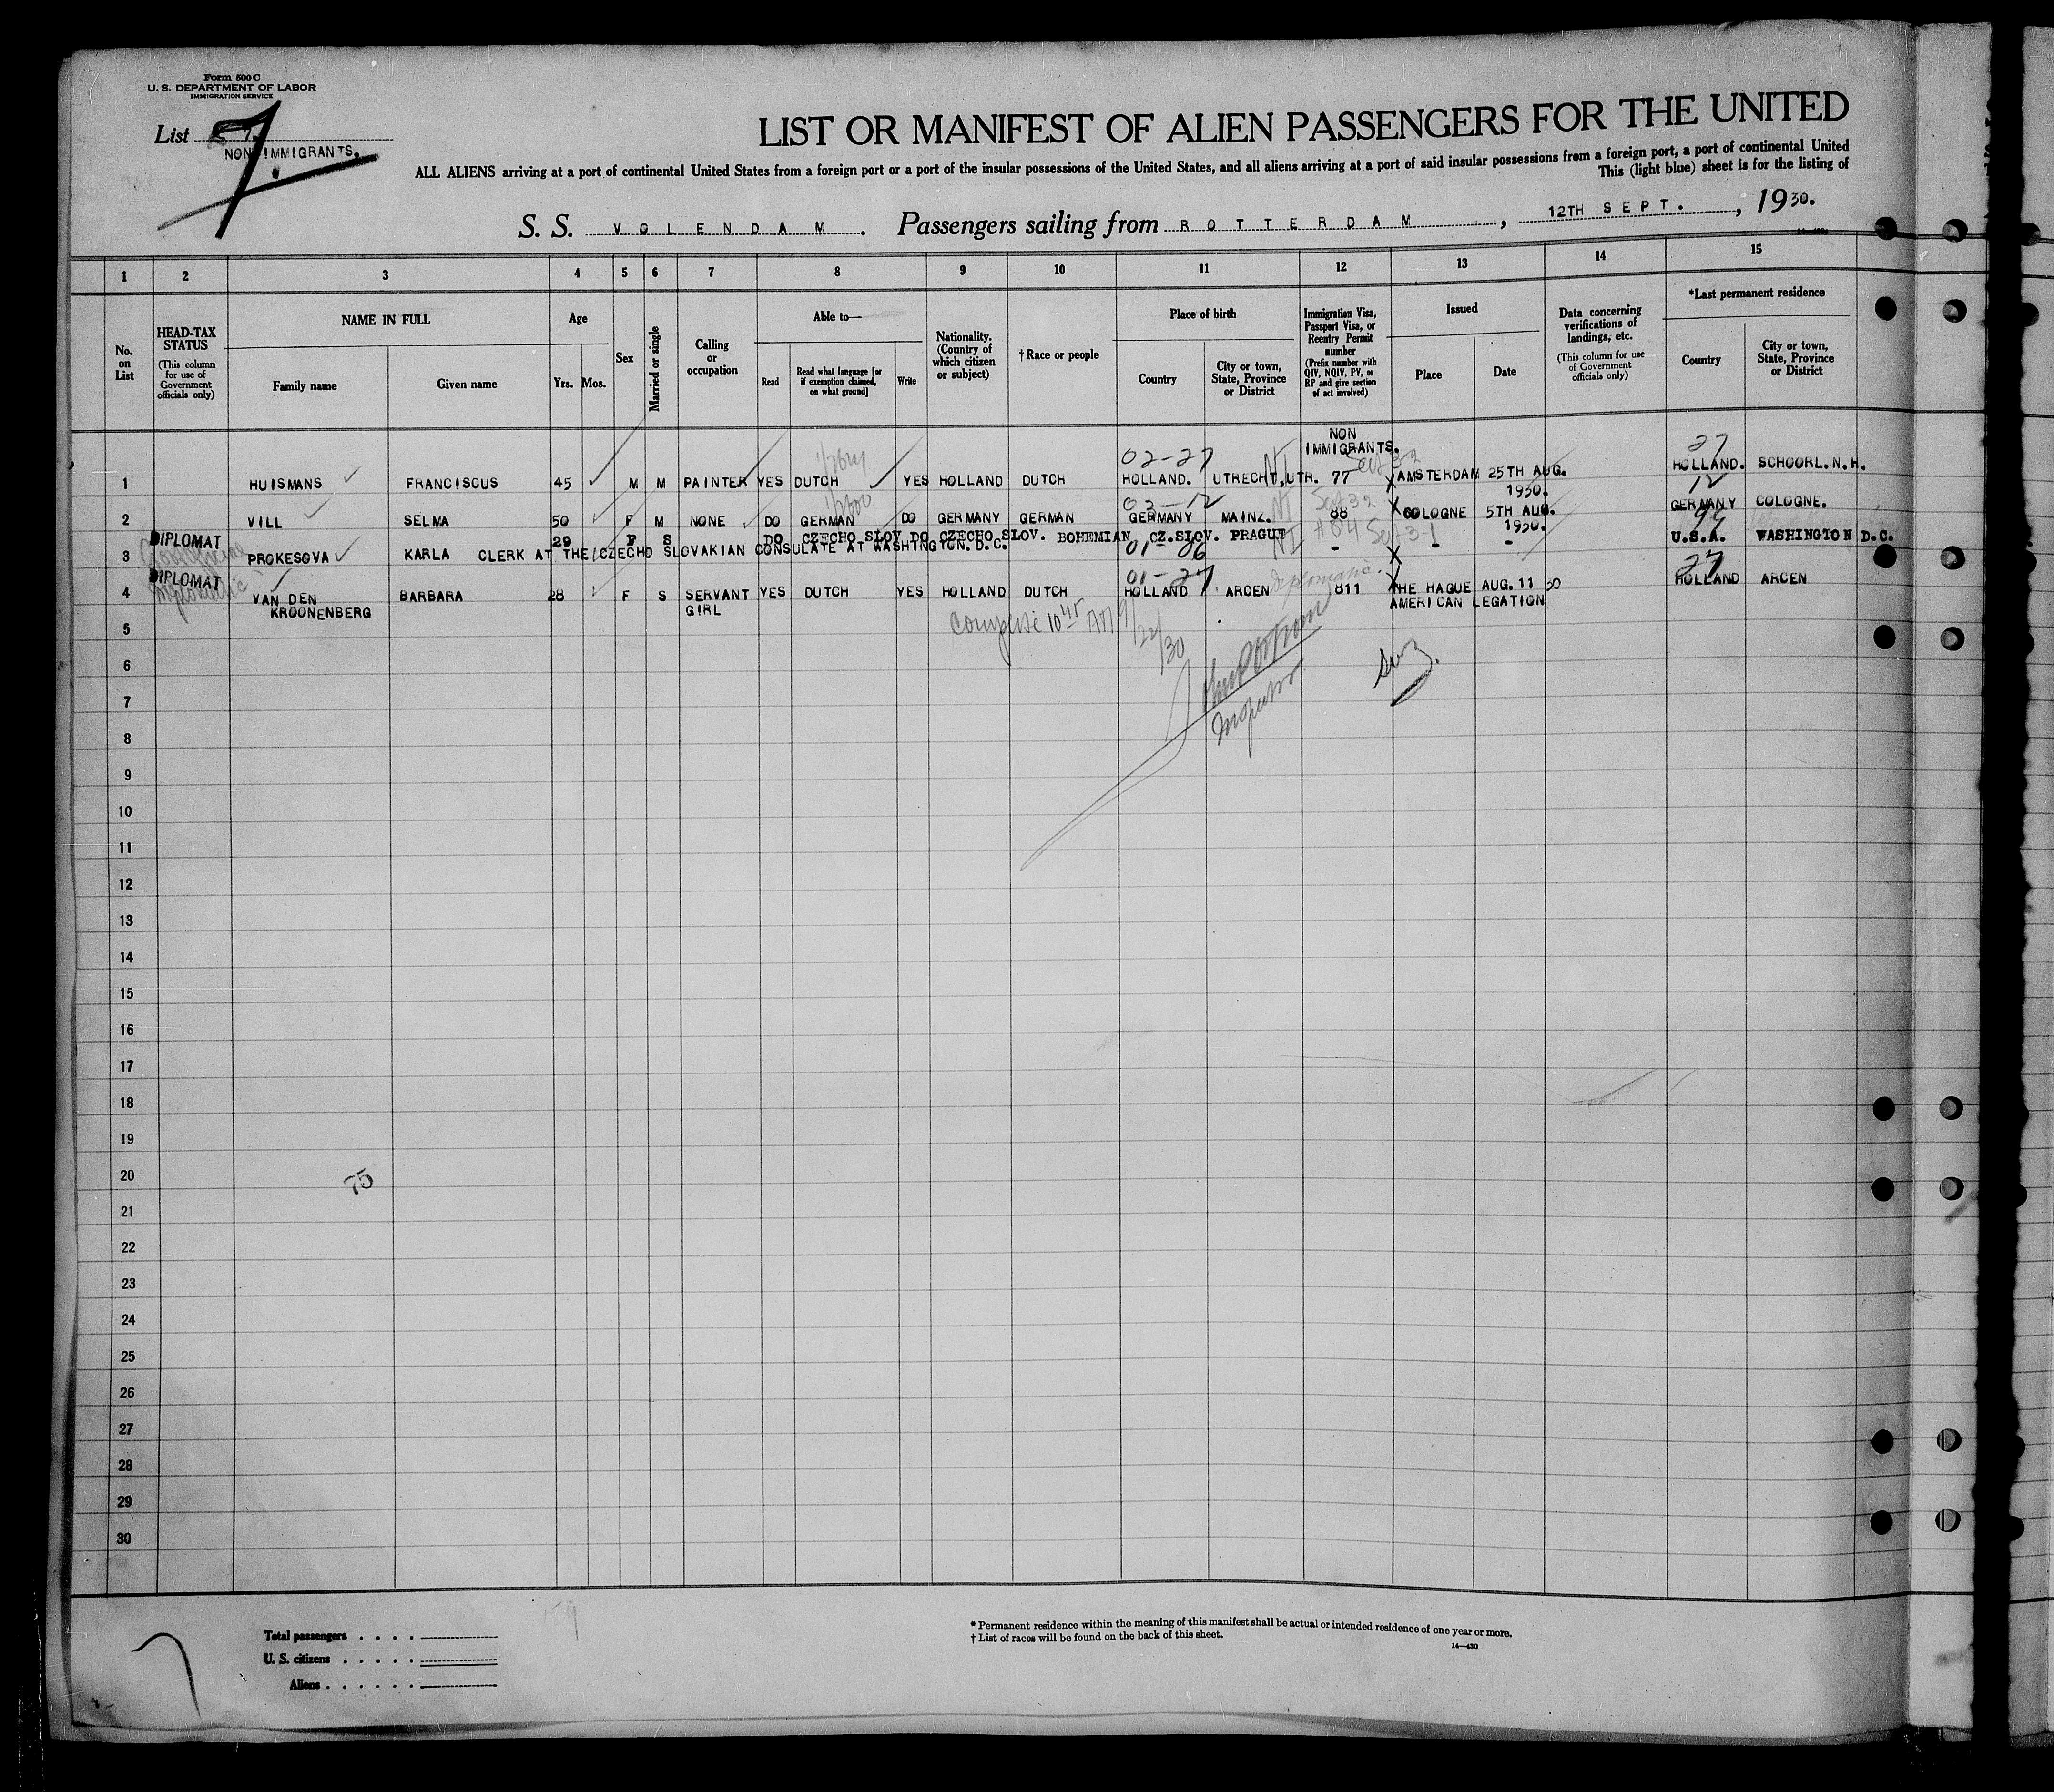 Form 500 C
U. S. DEPARTMENT OF LABOR
IMMIGRATION SERVICE
List 7.
NON IMMIGRANTS.
7
LIST OR MANIFEST OF ALIEN PASSENGERS FOR THE UNITED
ALL ALIENS arriving at a port of continental United States from a foreign port or a port of the insular possessions of the United States, and all aliens arriving at a port of said insular possessions from a foreign port, a port of continental United
This (light blue) sheet is for the listing of
S. S. VOLENDAM. Passengers sailing from ROTTERDAM, 12TH SEPT., 1930.
1 2 3 4 5 6 7 8 9 10 11 12 13 14 15
No. on List
HEAD-TAX STATUS
(This column for use of Government officials only)
NAME IN FULL
Family name
Given name
Age
Yrs.
Mos.
Sex
Married or single
Calling or occupation
Able to—
Read
Read what language [or if exemption claimed, on what ground]
Write
Nationality. (Country of which citizen or subject)
† Race or people
Place of birth
Country
City or town, State, Province or District
Immigration Visa, Passport Visa, or Reentry Permit number
(Prefix number with QIV, NQIV, PV, or RP and give section of act involved)
Issued
Place
Date
Data concerning verifications of landings, etc.
(This column for use of Government officials only)
*Last permanent residence
Country
City or town, State, Province or District
NON
IMMIGRANTS.
02-27 27
1 HUISMANS FRANCISCUS 45 M M PAINTER YES DUTCH YES HOLLAND DUTCH HOLLAND. UTRECHT, UTR. 77 AMSTERDAM 25TH AUG. 1930. HOLLAND. SCHOORL. N. H.
02-12 12
2 VILL SELMA 50 F M NONE DO GERMAN DO GERMANY GERMAN GERMANY MAINZ. 88 COLOGNE 5TH AUG. 1930. GERMANY COLOGNE.
DIPLOMAT 29 F S DO CZECHO SLOV DO CZECHO SLOV. BOHEMIAN CZ.SLOV. PRAGUE U.S.A. WASHINGTON D.C.
01-06 99
3 PROKESOVA KARLA CLERK AT THE CZECHO SLOVAKIAN CONSULATE AT WASHINGTON. D.C. - - -
DIPLOMAT
01-27 27
Diplomatic
4 VAN DEN KROONENBERG BARBARA 28 F S SERVANT GIRL YES DUTCH YES HOLLAND DUTCH HOLLAND ARCEN 811 THE HAGUE AUG. 11 30 HOLLAND ARCEN
AMERICAN LEGATION
Complete 10 45 AM 9/22/30
Inspector
5
6
7
8
9
10
11
12
13
14
15
16
17
18
19
20
75
21
22
23
24
25
26
27
28
29
30
Total passengers . . . .
U. S. citizens . . . . .
Aliens . . . . . .
* Permanent residence within the meaning of this manifest shall be actual or intended residence of one year or more.
† List of races will be found on the back of this sheet.
14—430